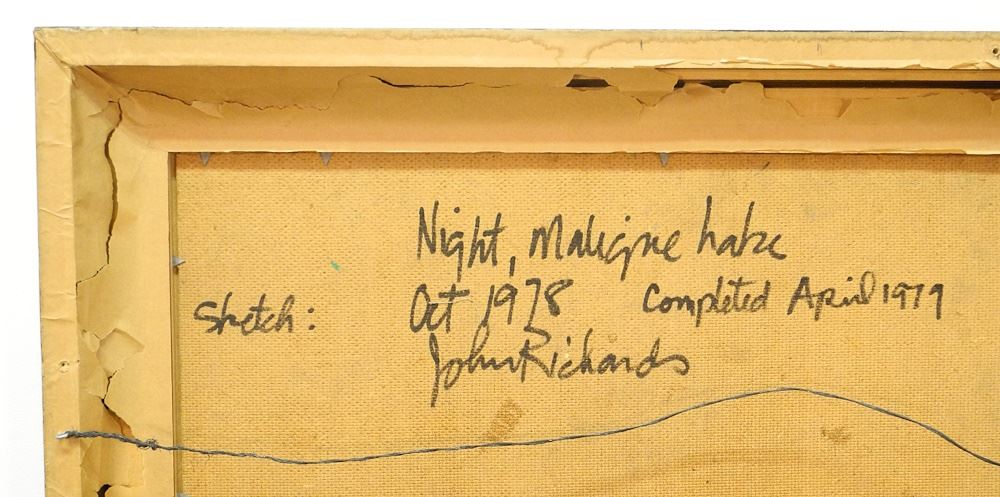 Night, Maligne Lake
Sketch: Oct 1978 Completed April 1979
John Richards